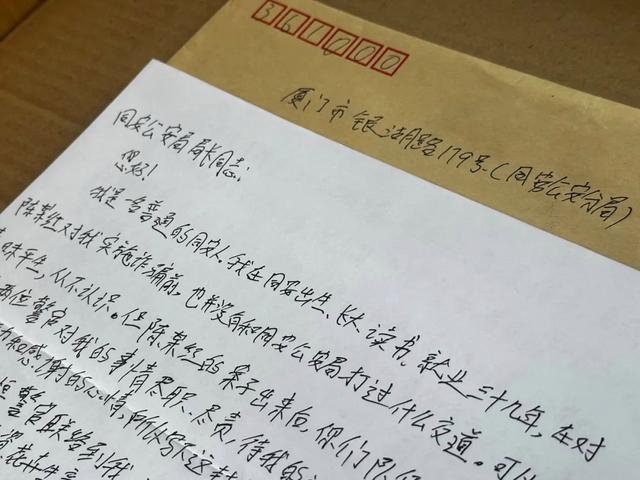 361000
厦门市银湖路179号(同安公安分局)
同安公安局局长同志:
您好!
我是一名普通的同安人。我在同安出生、长大、读书、就业三十九年,在对
陈某丝对我实施诈骗前,也并没有和同安公安局打过什么交道。可
昧平生,从不认识。但陈某丝的案子出来后,你们队
两位警官对我的事情尽职、尽责,待我的
感谢的心情,所以写这
警官联络到我